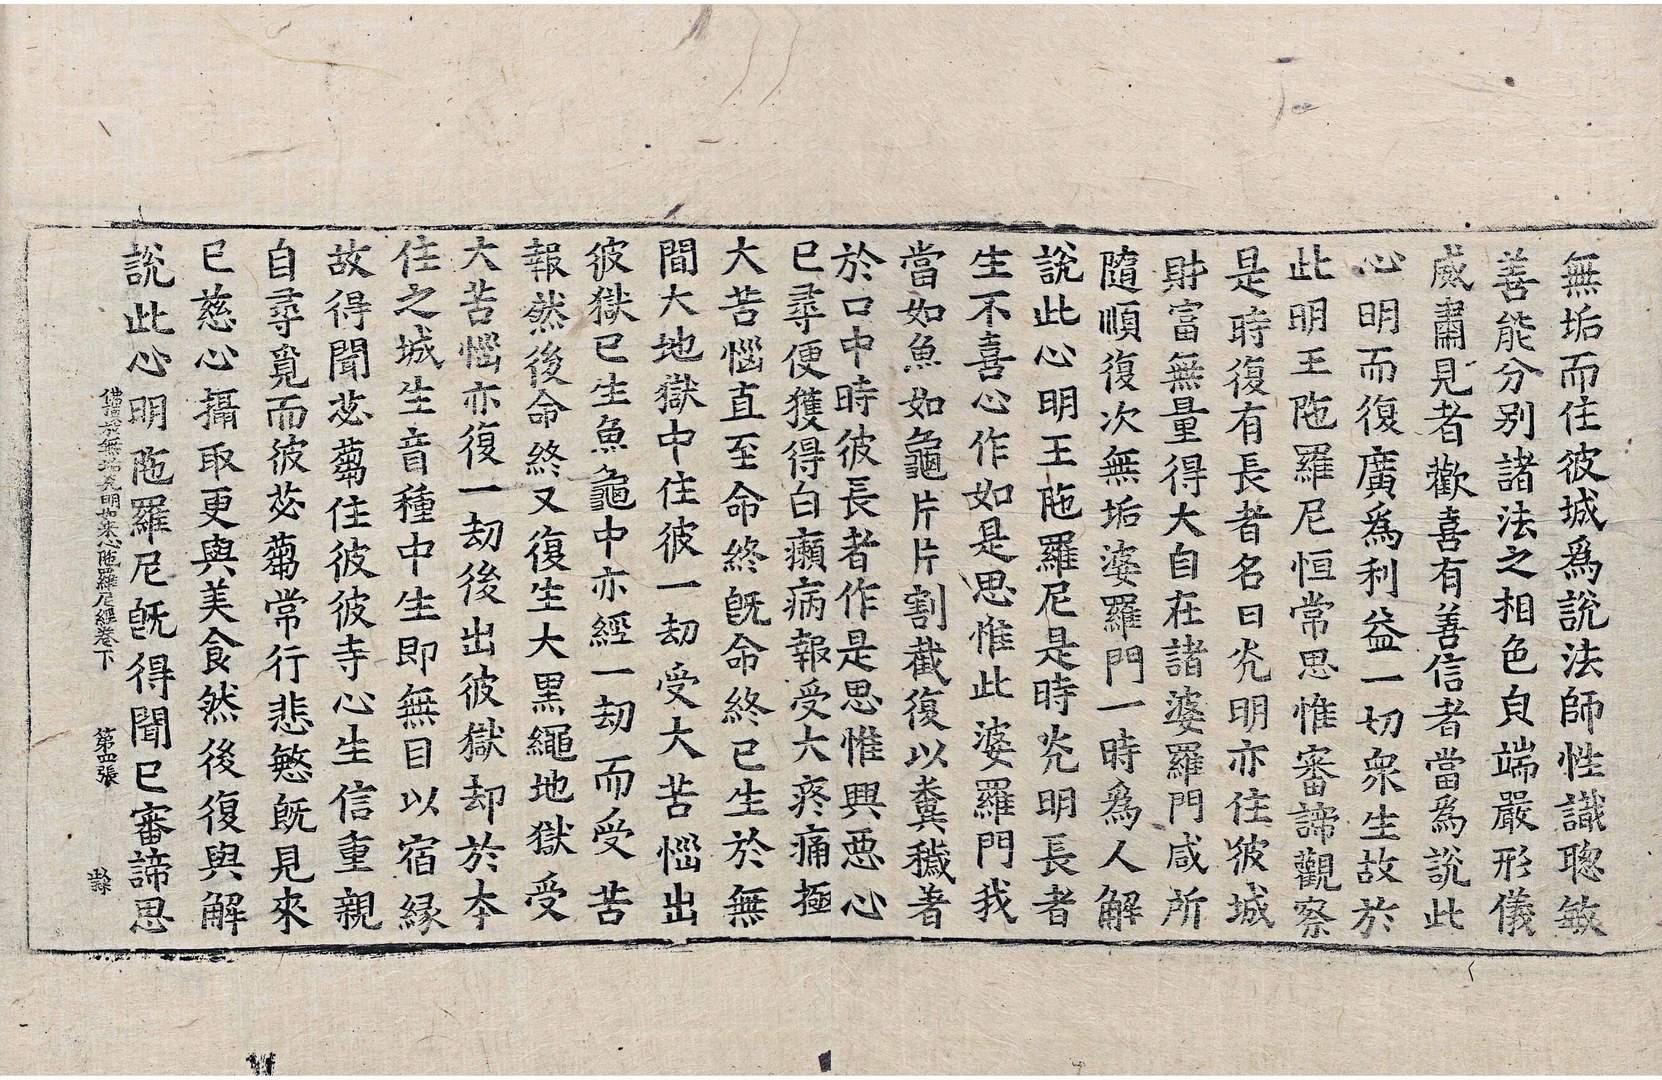 無垢而住彼城爲說法師性識聦敏
善能分别諸法之相色皃端嚴形儀
威肅見者歡喜有善信者當爲說此
心明而復廣爲利益一切衆生故於
此明王陁羅尼恒常思惟審諦觀察
是時復有長者名曰光明亦住彼城
財富無量得大自在諸婆羅門咸所
隨順復次無垢婆羅門一時爲人解
說此心明王陁羅尼是時光明長者
生不喜心作如是思惟此婆羅門我
當如魚如龜片片割截復以糞穢著
於口中時彼長者作是思惟興惡心
已尋便獲得白癩病報受大疼痛極
大苦惱直至命終旣命終已生於無
間大地獄中住彼一劫受大苦惱出
彼獄已生魚龜中亦經一劫而受苦
報然後命終又復生大黑繩地獄受
大苦惱亦復一劫後出彼獄却於本
住之城生盲種中生即無目以宿緣
故得聞苾蒭住彼彼寺心生信重親
自尋覓而彼苾蒭常行悲愍旣見來
已慈心攝取更與美食然後復與解
說此心明陁羅尼旣得聞已審諦思
佛說無垢光明如來心陁羅尼經卷下 第四張